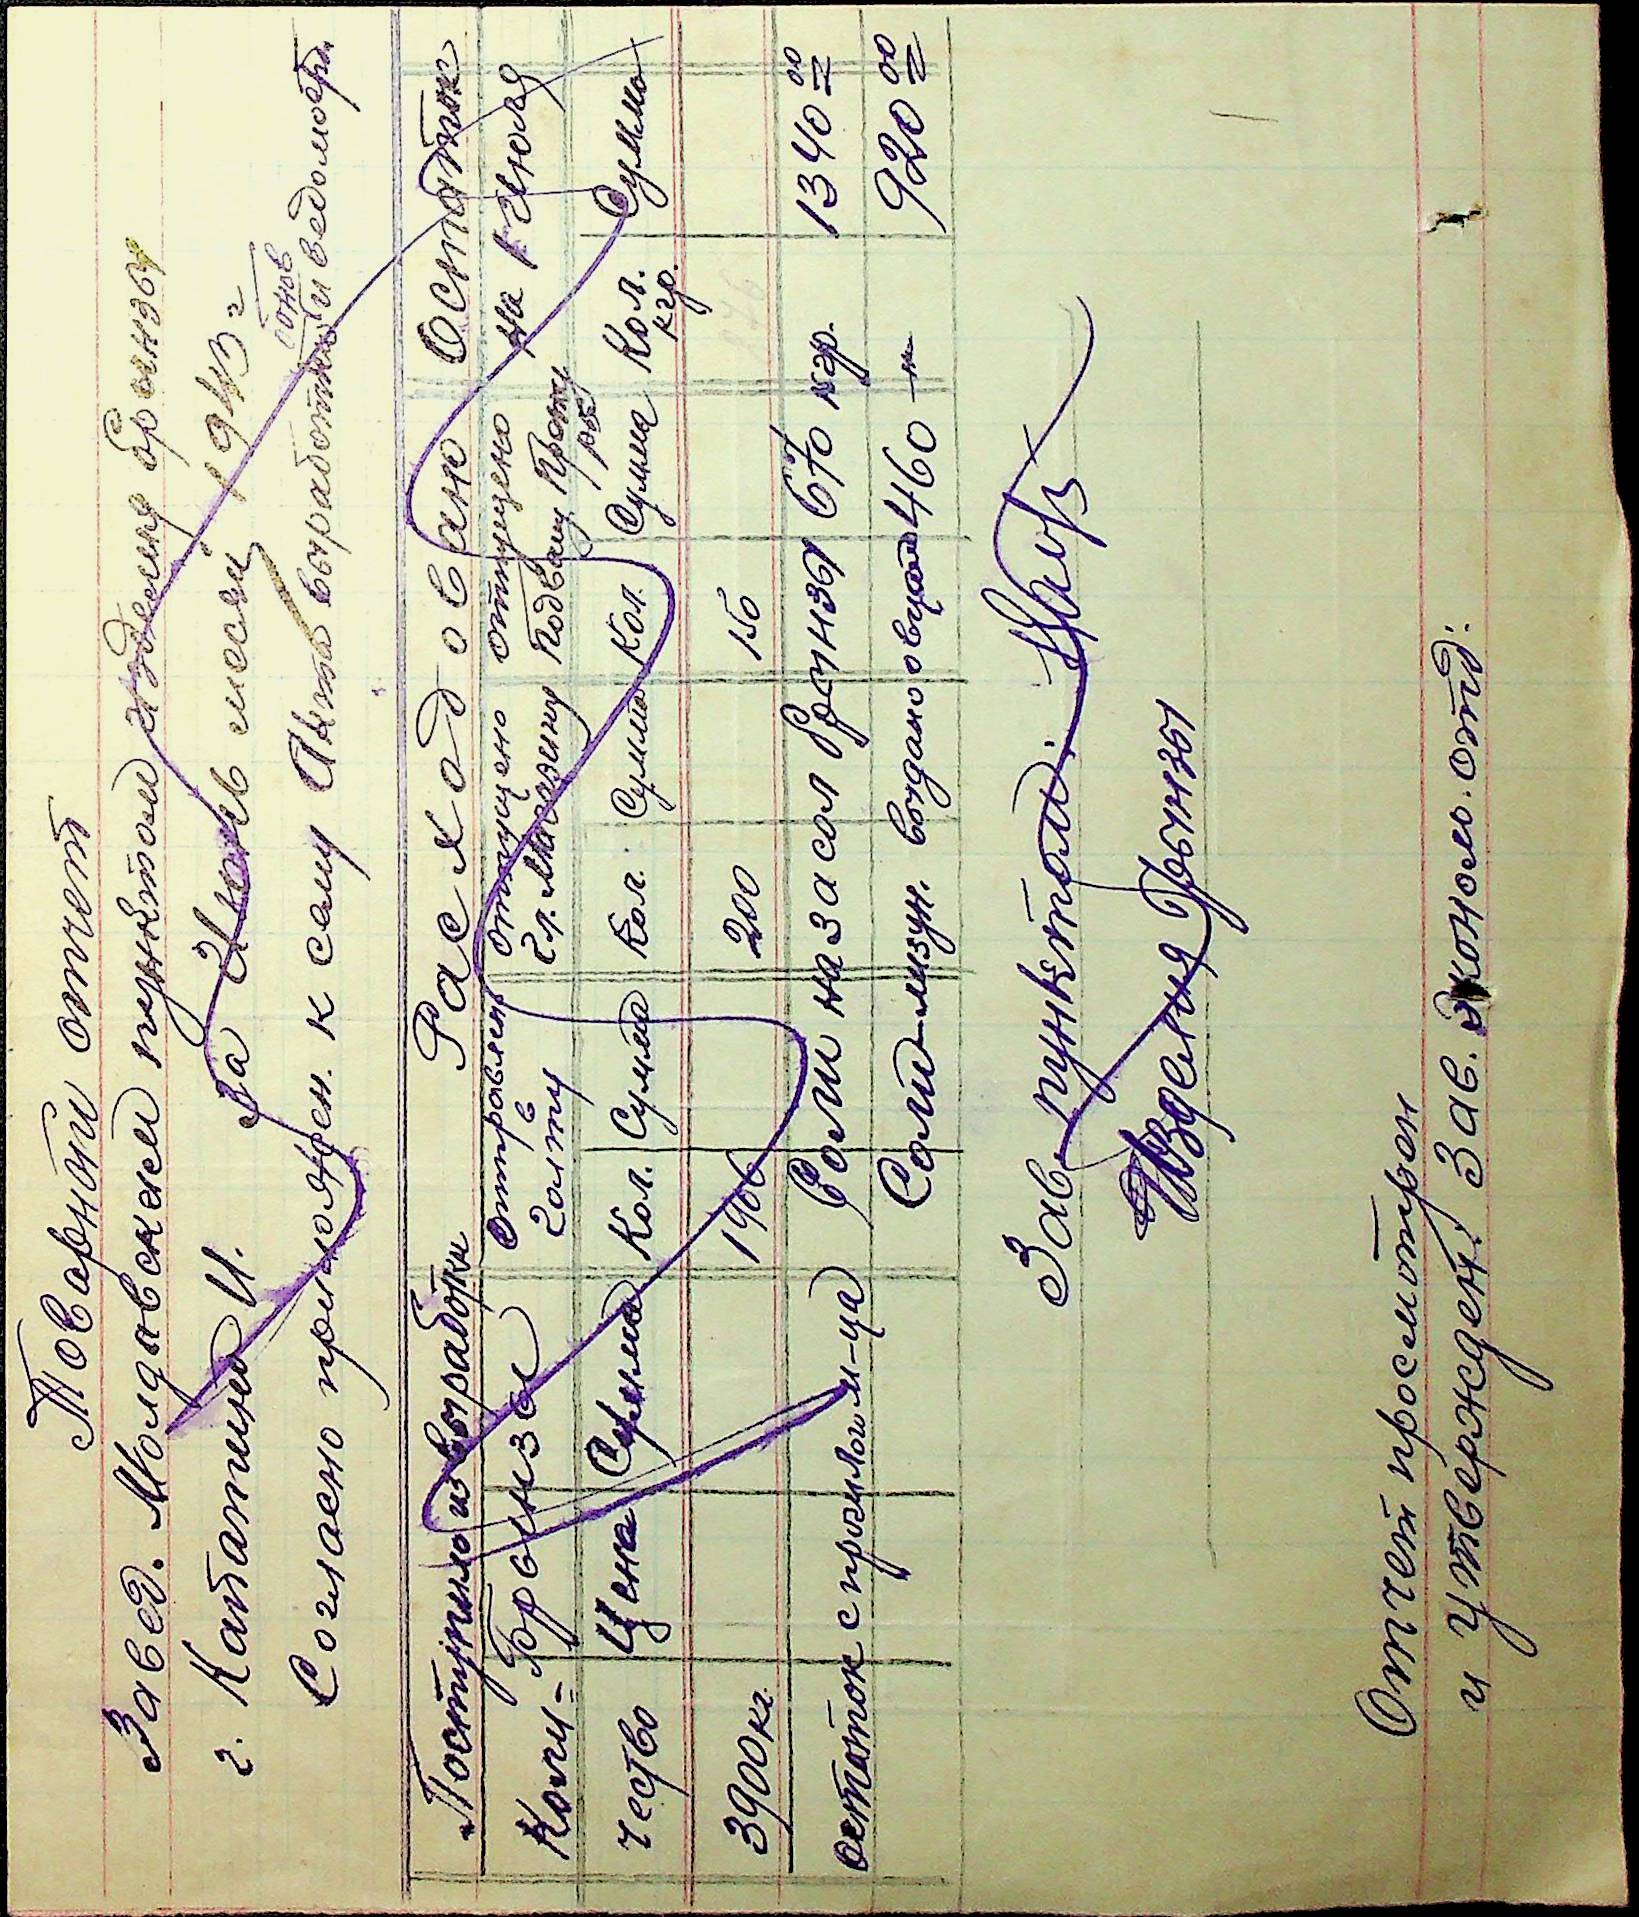 Товарный отчет
Завед. Молдавскем пунктом изделия брынзы
г. Кабатина И. За Июнь месяц 1943 г
Согласно приложен. к сему Акта выработки и ведомост.
Поступило из выработки Расходовано Остаток
Коли- Брынзы Отправлен в Голту Отпущено Гл. Магазину отпущено Подвалу на 1 Июля
чество Цена Сумма Кол. Сумма Кол. Сумма Кол. Сумма Кол. кгр. Сумма
3900 кг. 1906 200 150
остаток с прошлого м-ца Соли на засол Брынзы 670 кгр. 1340 00
Соли-лизун. 460 -"- 920 00
Зав. пунктом:
Изделия Брынзы
Отчет просмотрен
и утвержден: Зав. Эконом. отд: